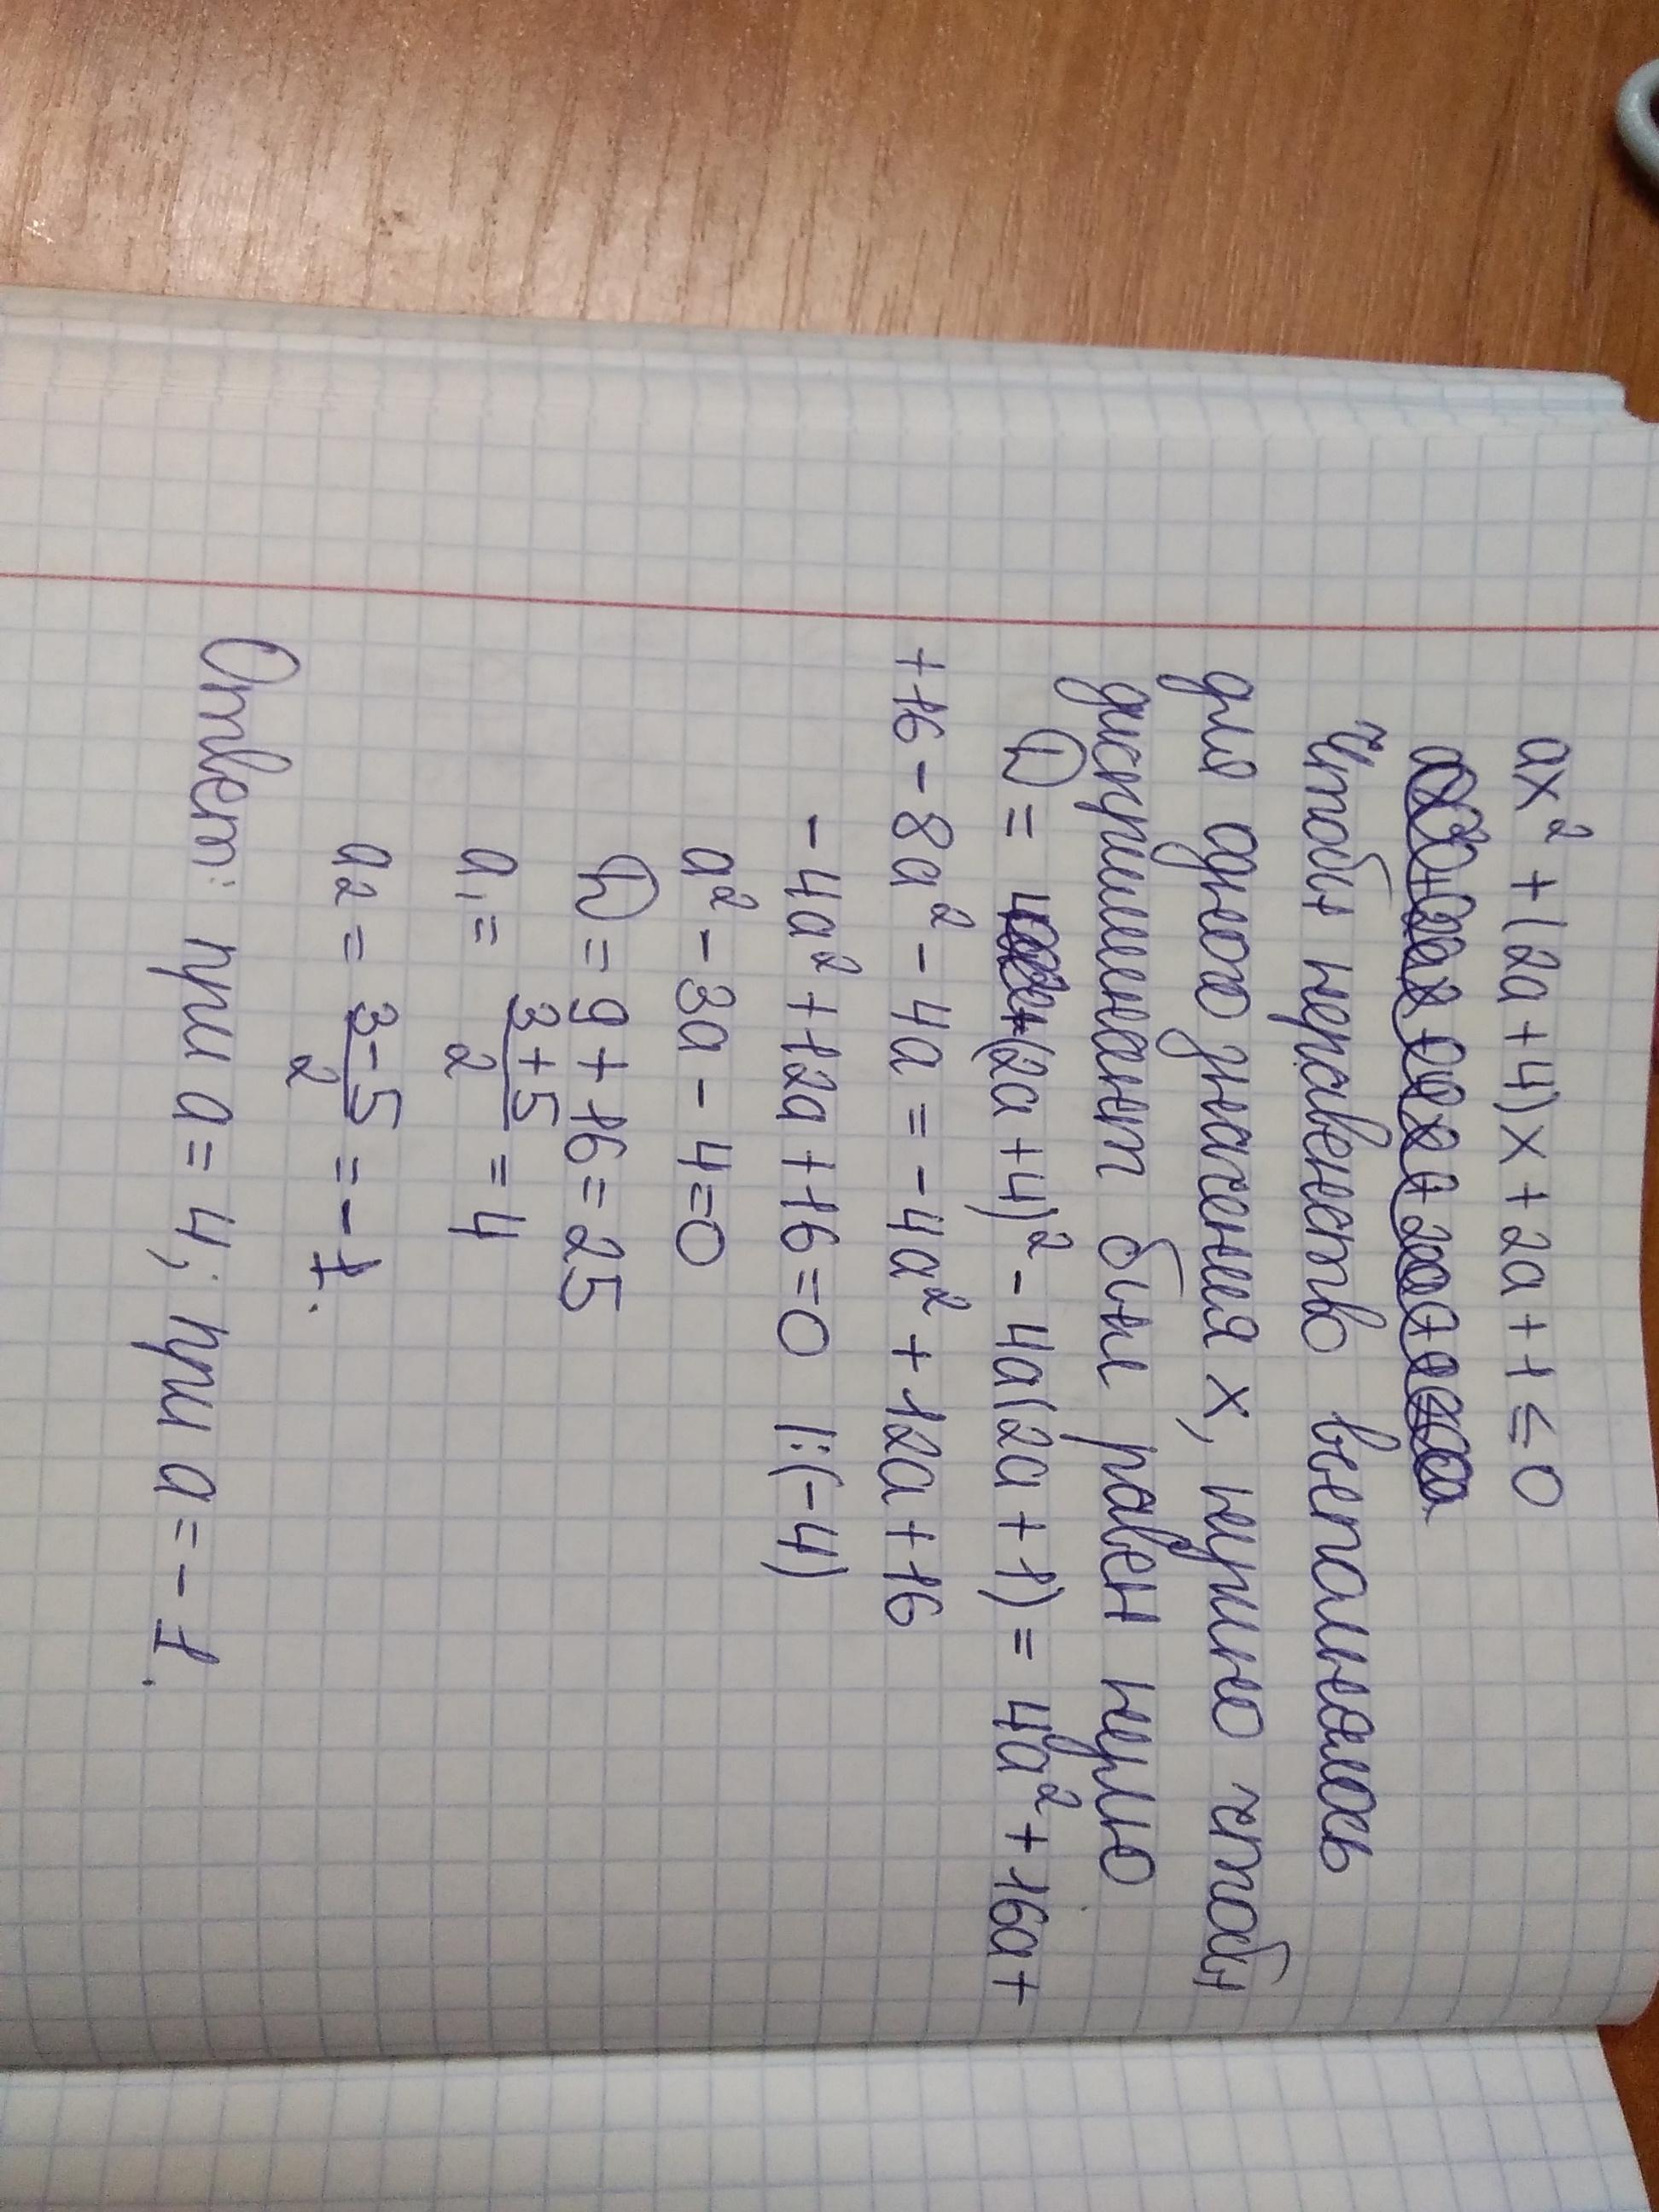 ax² + (2a + 4)x + 2a + 1 ≤ 0
Чтобы неравенство выполнялось
для одного значения x, нужно чтобы
дискриминант был равен нулю
D = (2a + 4)² - 4a(2a + 1) = 4a² + 16a +
+ 16 - 8a² - 4a = -4a² + 12a + 16
-4a² + 12a + 16 = 0 |:(-4)
a² - 3a - 4 = 0
D = 9 + 16 = 25
a₁ = (3 + 5)/2 = 4
a₂ = (3 - 5)/2 = -1.
Ответ: при a = 4; при a = -1.